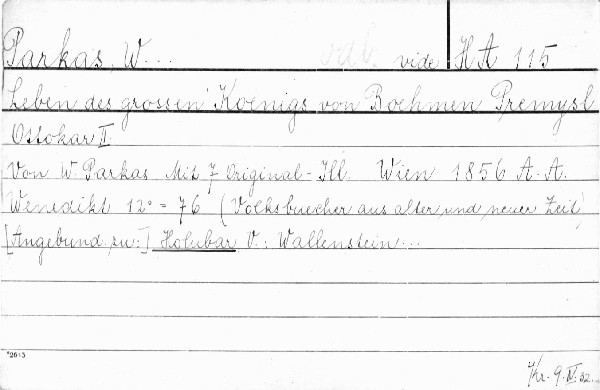 Parkas, W... vide HA 115
Leben des grossen Koenigs von Boehmen Premysl
Ottokar II.
Von W. Parkas. Mit 7 Original-Ill. Wien 1856 A. A.
Wenedikt 12° = 76 (Volksbuecher aus alter und neuer Zeit)
[Angebund. zu:] Holubar V.: Wallenstein...
*2615
9. IV. 32.